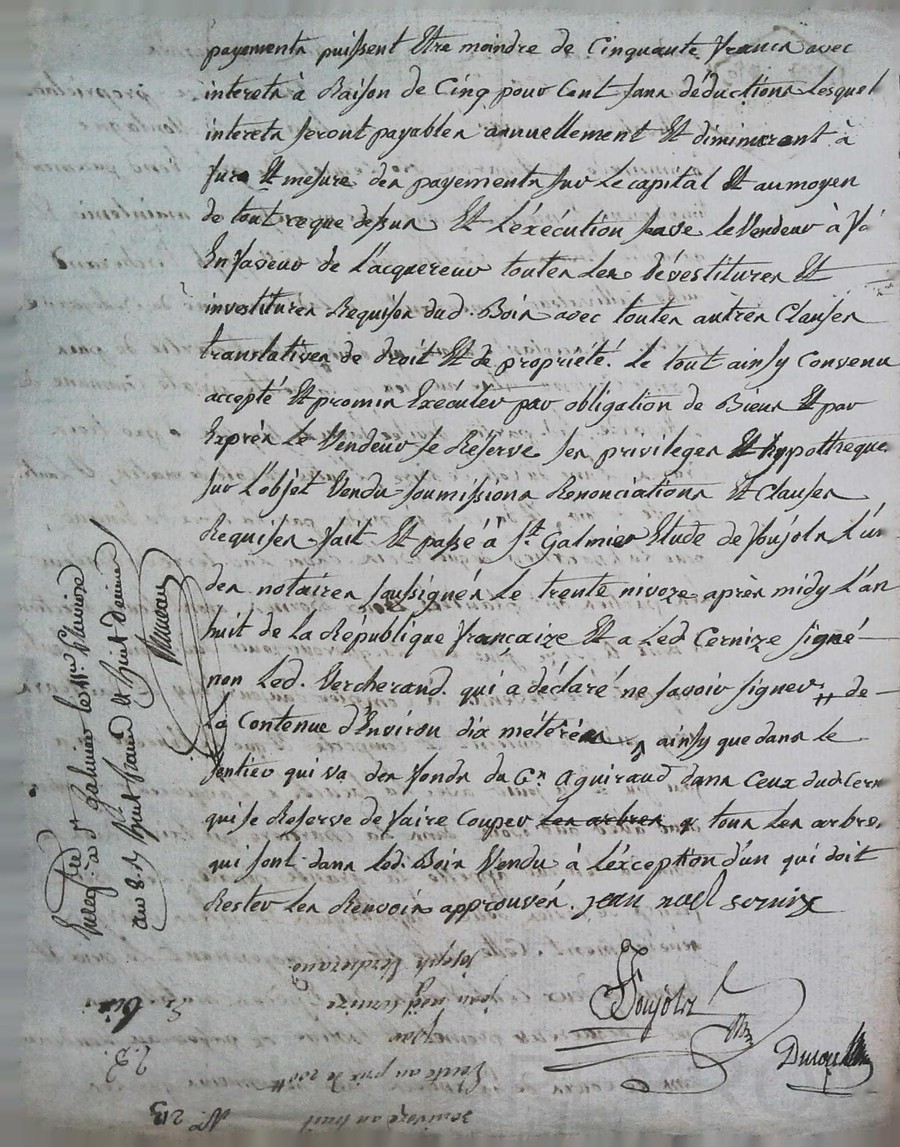 payements puissent Etre moindre de Cinquante francs avec
interets à Raison de Cinq pour Cent sans déductions Lesquel
interets seront payables annuellement Et diminuront à
fure Et mesure des payements sur Le capital Et au moyen
de tout ce que dessus Et L'exécution le Vendeur à
En faveur de L'acquereur toutes Les dévestitures Et
investitures Requises dud. Bois avec toutes autres Clauses
translatives de droit Et de propriété. Le tout ainsy Convenu
accepté Et promis Exécuter par obligation de Biens Et par
Exprès Le Vendeur se Réserve ses privileges Et hypotheque
sur L'objet Vendu soumissions Renonciations Et Clauses
Requises fait Et passé à St. Galmier Etude de Soujols L'un
des notaires soussignés Le trente nivoze après midy L'an
huit de La République françaize Et a Led Cernize signé
non Led. Vercherand qui a déclaré ne savoir signer de
La Contenue d'Environ dix métérées ainsy que dans le
sentier qui va des fonds du Cn. Aguiraud dans Ceux dud Cern
qui se Reserve de faire Couper les arbres tous Les arbres
qui sont dans Led. Bois Vendu à L'exception d'un qui doit
Rester Les Renvois approuvés. jean noel sernize
Soujols
Enregistré à St Galmier le 11me Pluviose
an 8. huit francs Et huit decimes
joseph Vercherand
jean noel sernize
pour
Vente au prix de
30 nivoze an huit
No. 213